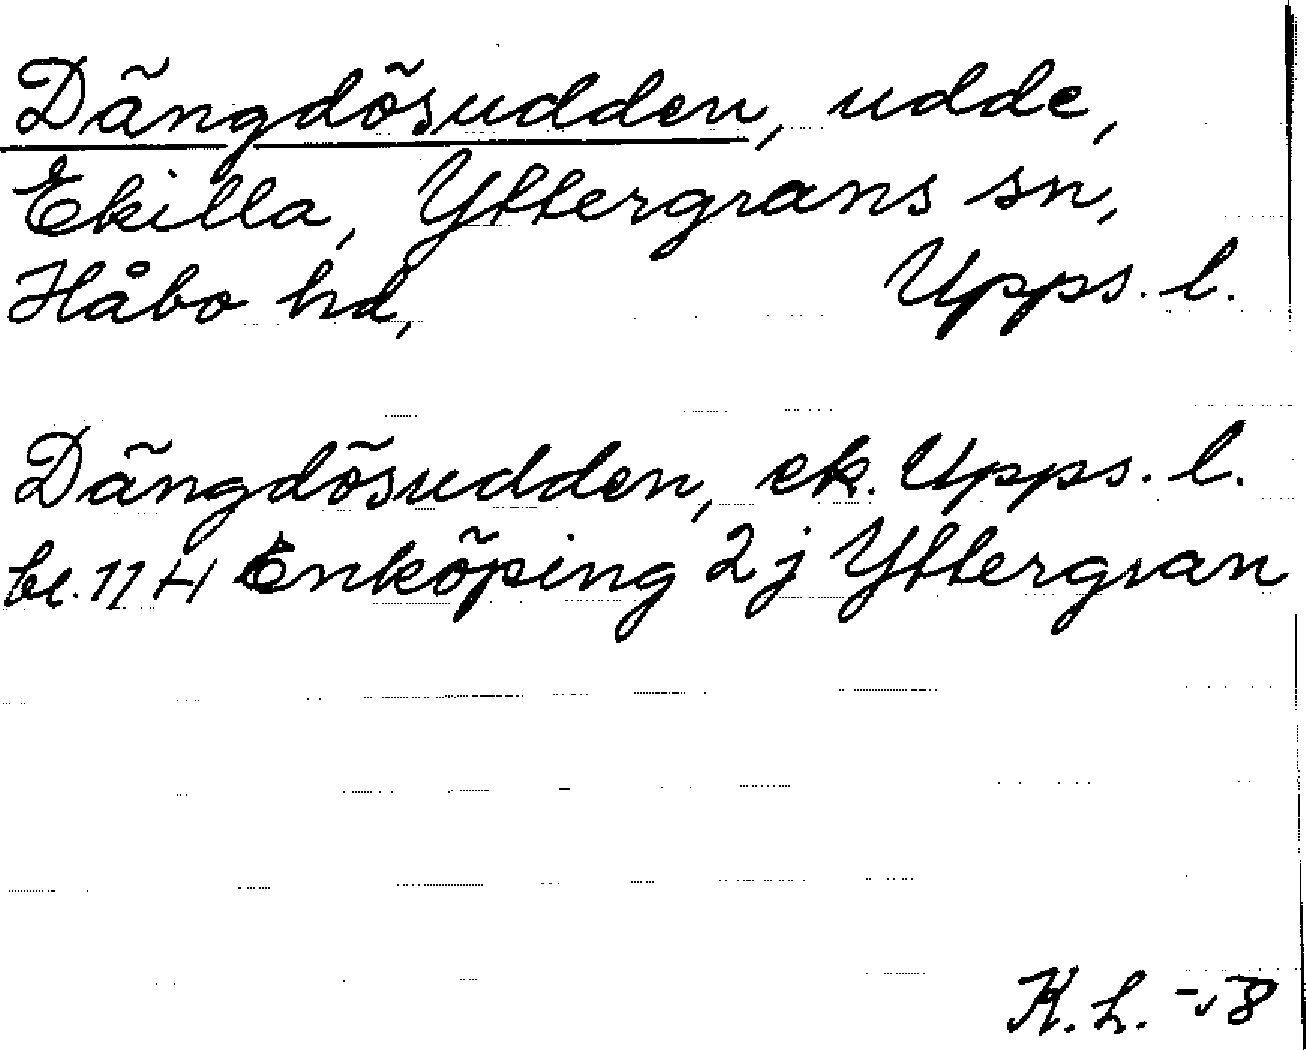 Dängdösudden, udde,
Ekilla, Yttergrans sn,
Håbo hd, Upps. l.
Dängdösudden, ek. Upps. l.
bl. 114 Enköping 2j Yttergran
K. L. -58